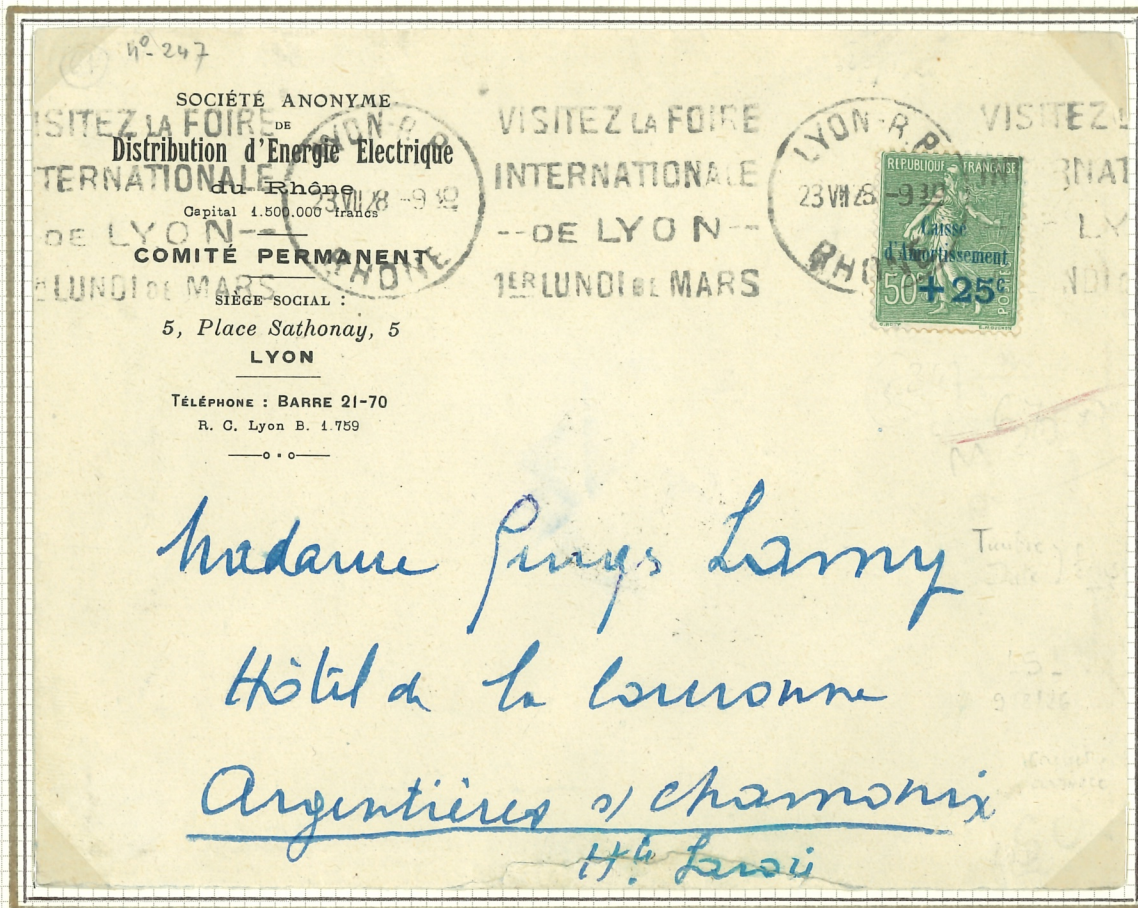 nº 247
SOCIÉTÉ ANONYME
DE
Distribution d'Energie Electrique
du Rhône
Capital 1.500.000 francs
COMITÉ PERMANENT
SIÈGE SOCIAL :
5, Place Sathonay, 5
LYON
TÉLÉPHONE : BARRE 21-70
R. C. Lyon B. 1.759
ISITEZ LA FOIRE
TERNATIONALE
DE LYON--
LUNDI DE MARS
LYON-R.P.
23 VII 28 -9 30
RHONE
VISITEZ LA FOIRE
INTERNATIONALE
--DE LYON--
1ER LUNDI DE MARS
LYON-R.P.
23 VII 28 -9 30
RHONE
VISITEZ L
RNAT
LY
NDI
REPUBLIQUE FRANÇAISE
Caisse
d'Amortissement
50c +25c
POSTES
Madame Georges Lamy
Hôtel de la Couronne
Argentières s/ Chamonix
Hte Savoie